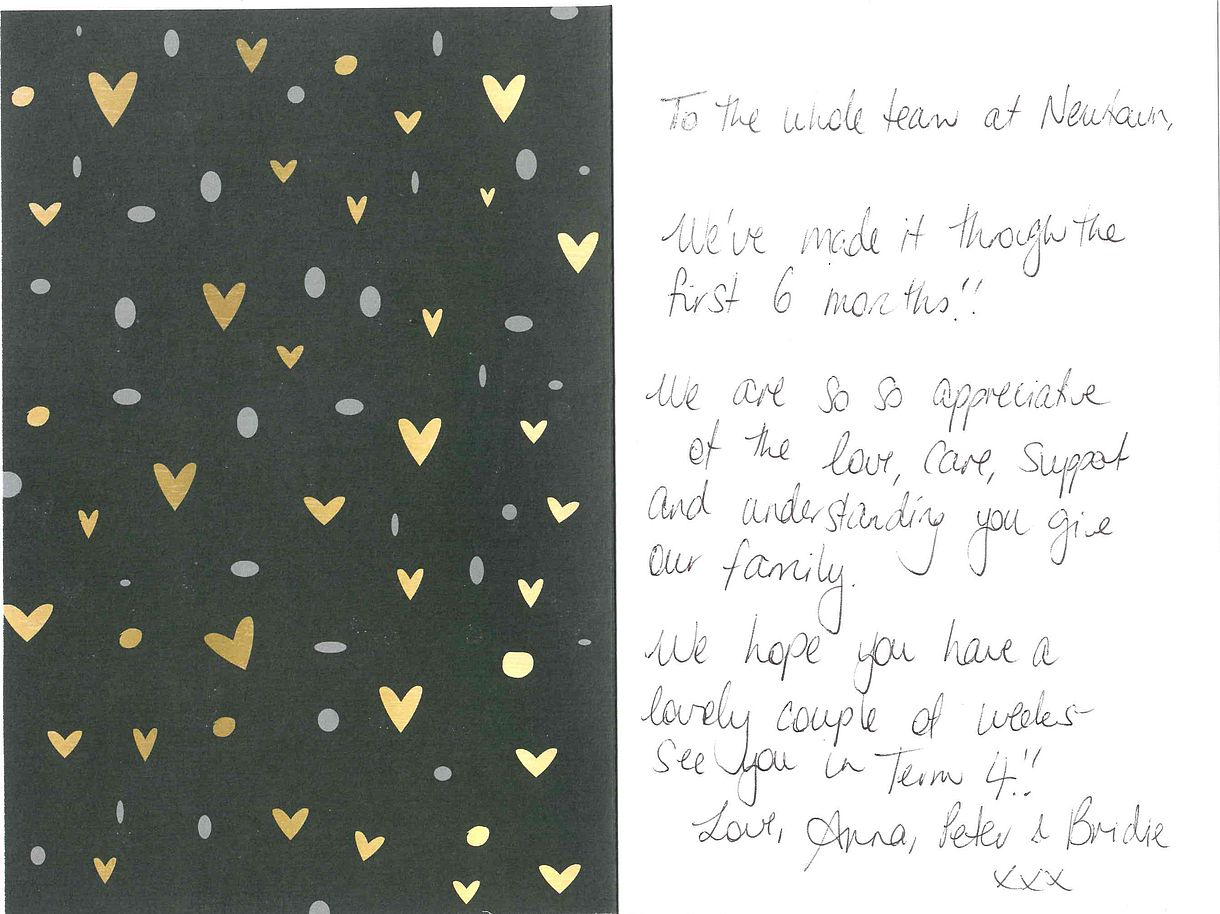 To the whole team at Newtown,
We've made it through the
first 6 months!!
We are so so appreciative
of the love, care, support
and understanding you give
our family.
We hope you have a
lovely couple of weeks-
see you in Term 4!!
Love, Anna, Peter & Bridie
xxx